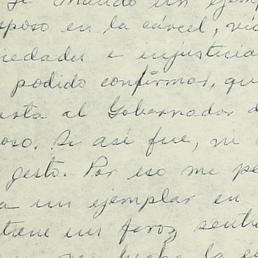 Le mando un ejemp
sposo en la cárcel, ví
iedades e injusticia
podido confirmar, qu
sta al Gobernador d
oso. Si así fue, mi
gesto. Por eso me pe
a un ejemplar en
tiene un feroz senti